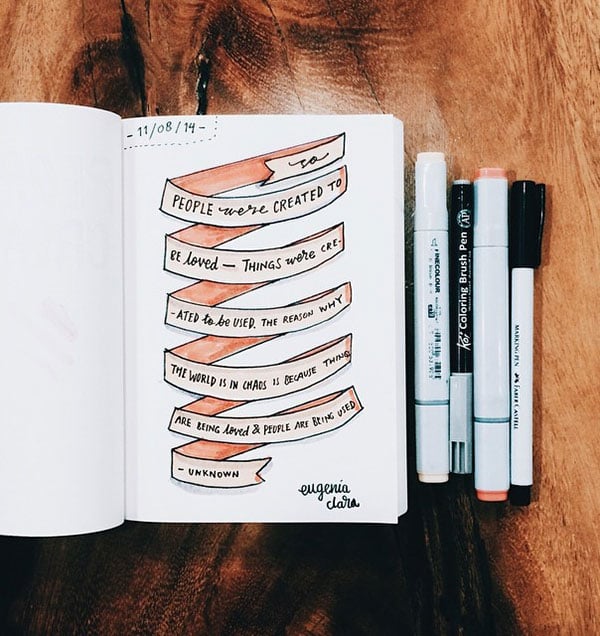 - 11/08/14 -
so
PEOPLE were CREATED TO
BE loved — THINGS were CRE-
-ATED to be USED. THE REASON WHY
THE WORLD IS IN CHAOS IS BECAUSE THING
ARE BEING loved & PEOPLE ARE BEING USED
- UNKNOWN
eugenia
clara
FINECOLOUR
Koi Coloring Brush Pen
MARKING PEN FABER-CASTELL